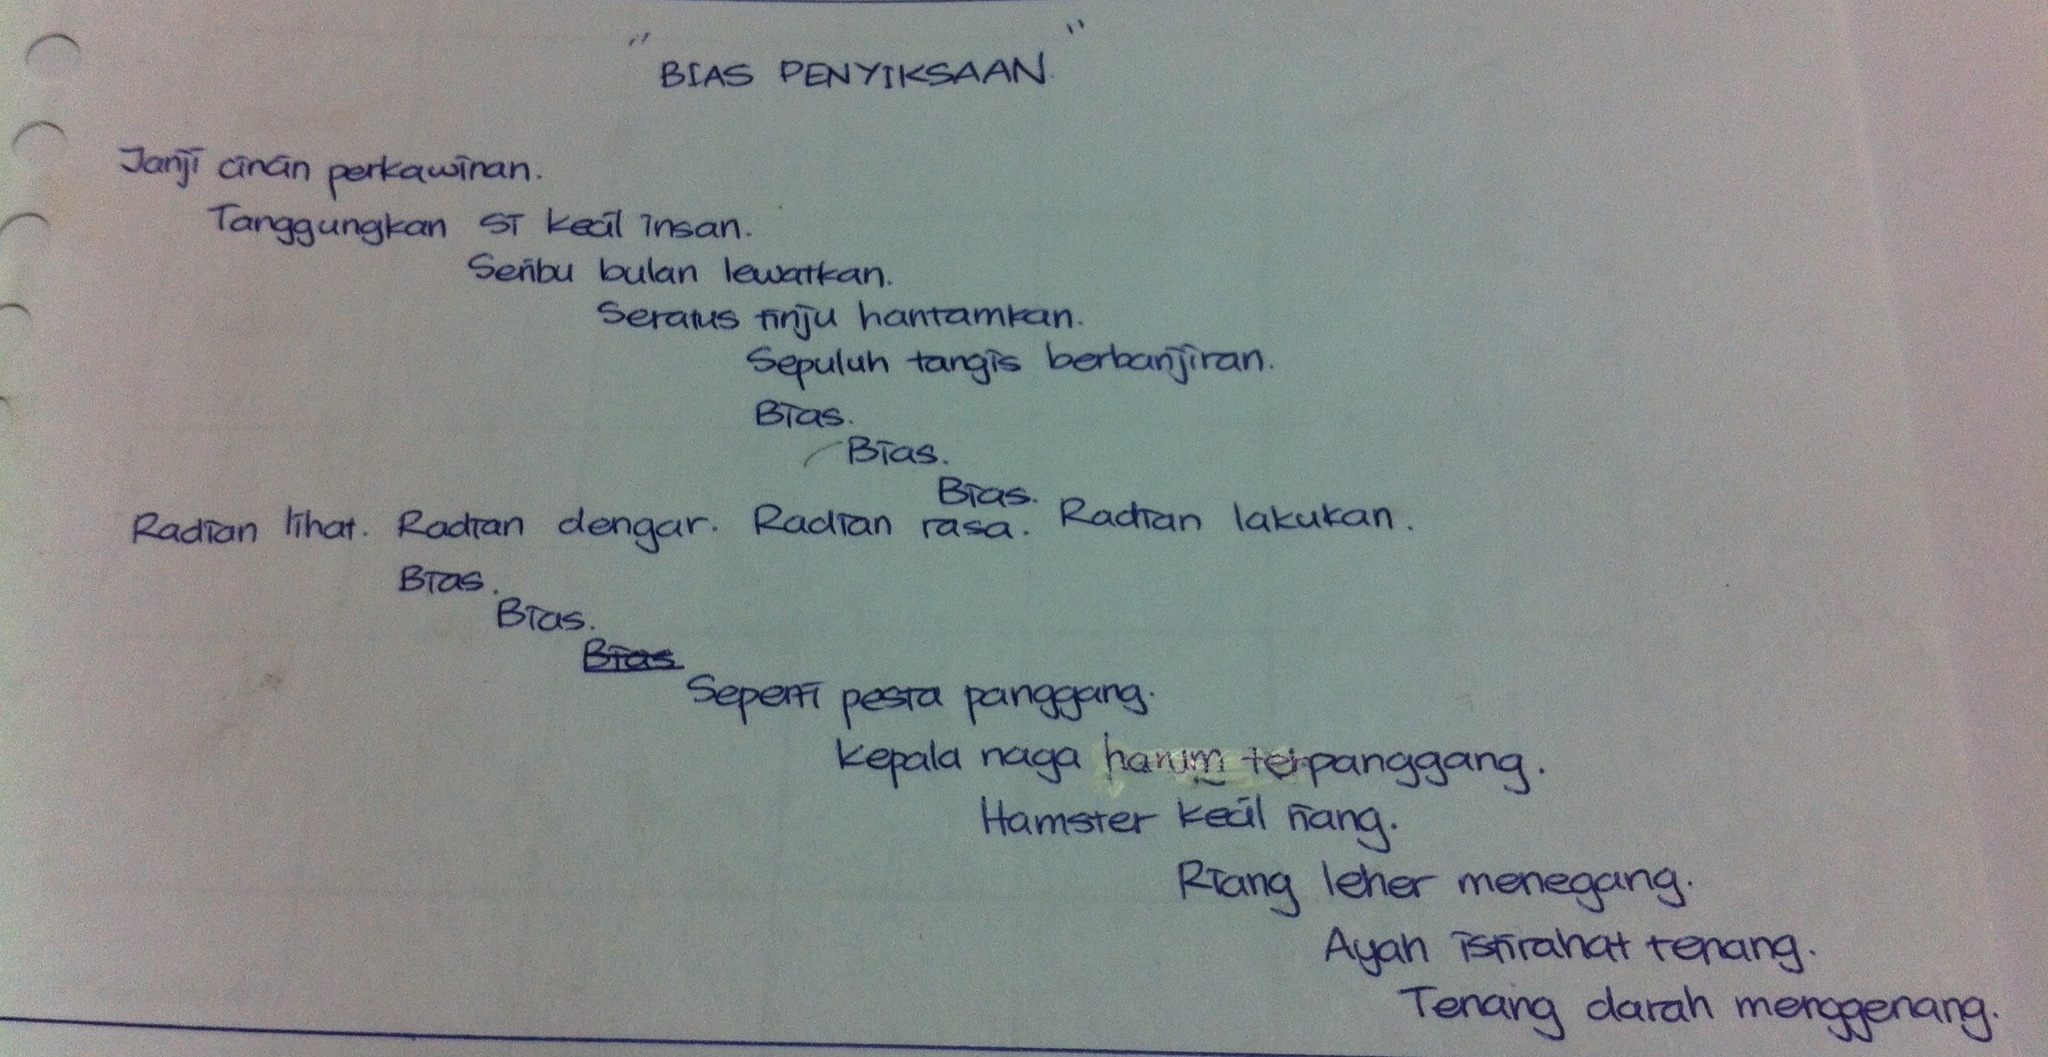 "BIAS PENYIKSAAN"
Janji cincin perkawinan.
Tanggungkan si kecil insan.
Seribu bulan lewatkan.
Seratus tinju hantamkan.
Sepuluh tangis berbanjiran.
Bias.
Bias.
Bias.
Radian lihat. Radian dengar. Radian rasa. Radian lakukan.
Bias.
Bias.
Bias
Seperti pesta panggang.
Kepala naga harum terpanggang.
Hamster kecil riang.
Riang leher menegang.
Ayah istirahat tenang.
Tenang darah menggenang.